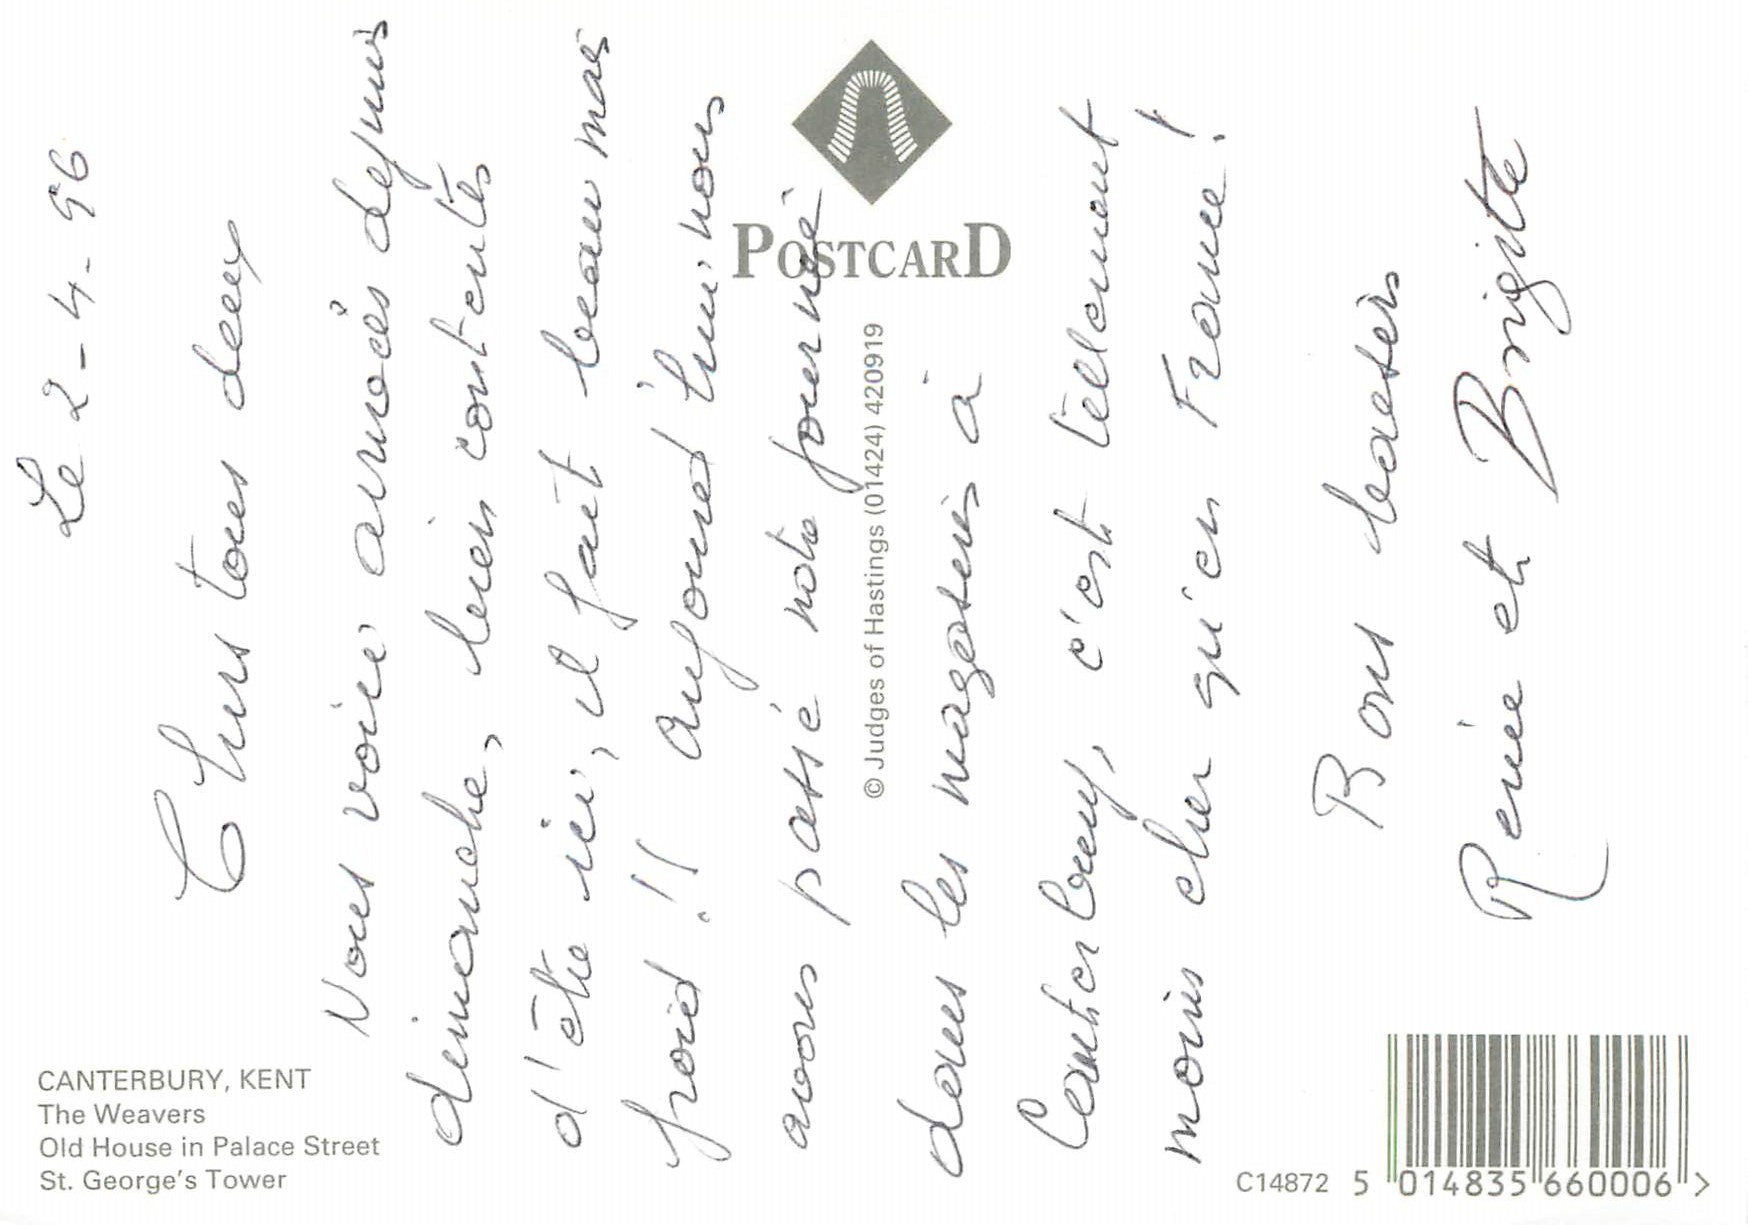 Le 2-4-96
Chers tous deux
Nous voici arrivées depuis
dimanche, bien contentes
d'être ici, il fait beau mais
froid !! Aujourd'hui, nous
avons passé notre journée
dans les magasins à
Canterbury, c'est tellement
moins cher qu'en France !
Bons baisers
Renée et Brigitte
POSTCARD
© Judges of Hastings (01424) 420919
CANTERBURY, KENT
The Weavers
Old House in Palace Street
St. George's Tower
C14872
5 014835 660006 >